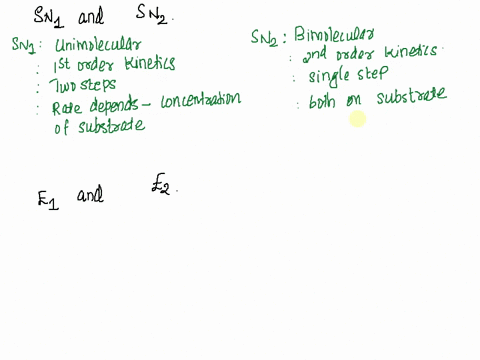 SN1 and SN2.
SN1: Unimolecular
: 1st order kinetics
: Two steps
: Rate depends - concentration
of substrate
SN2: Bimolecular
: 2nd order kinetics.
: single step
: both on substrate
E1 and E2.